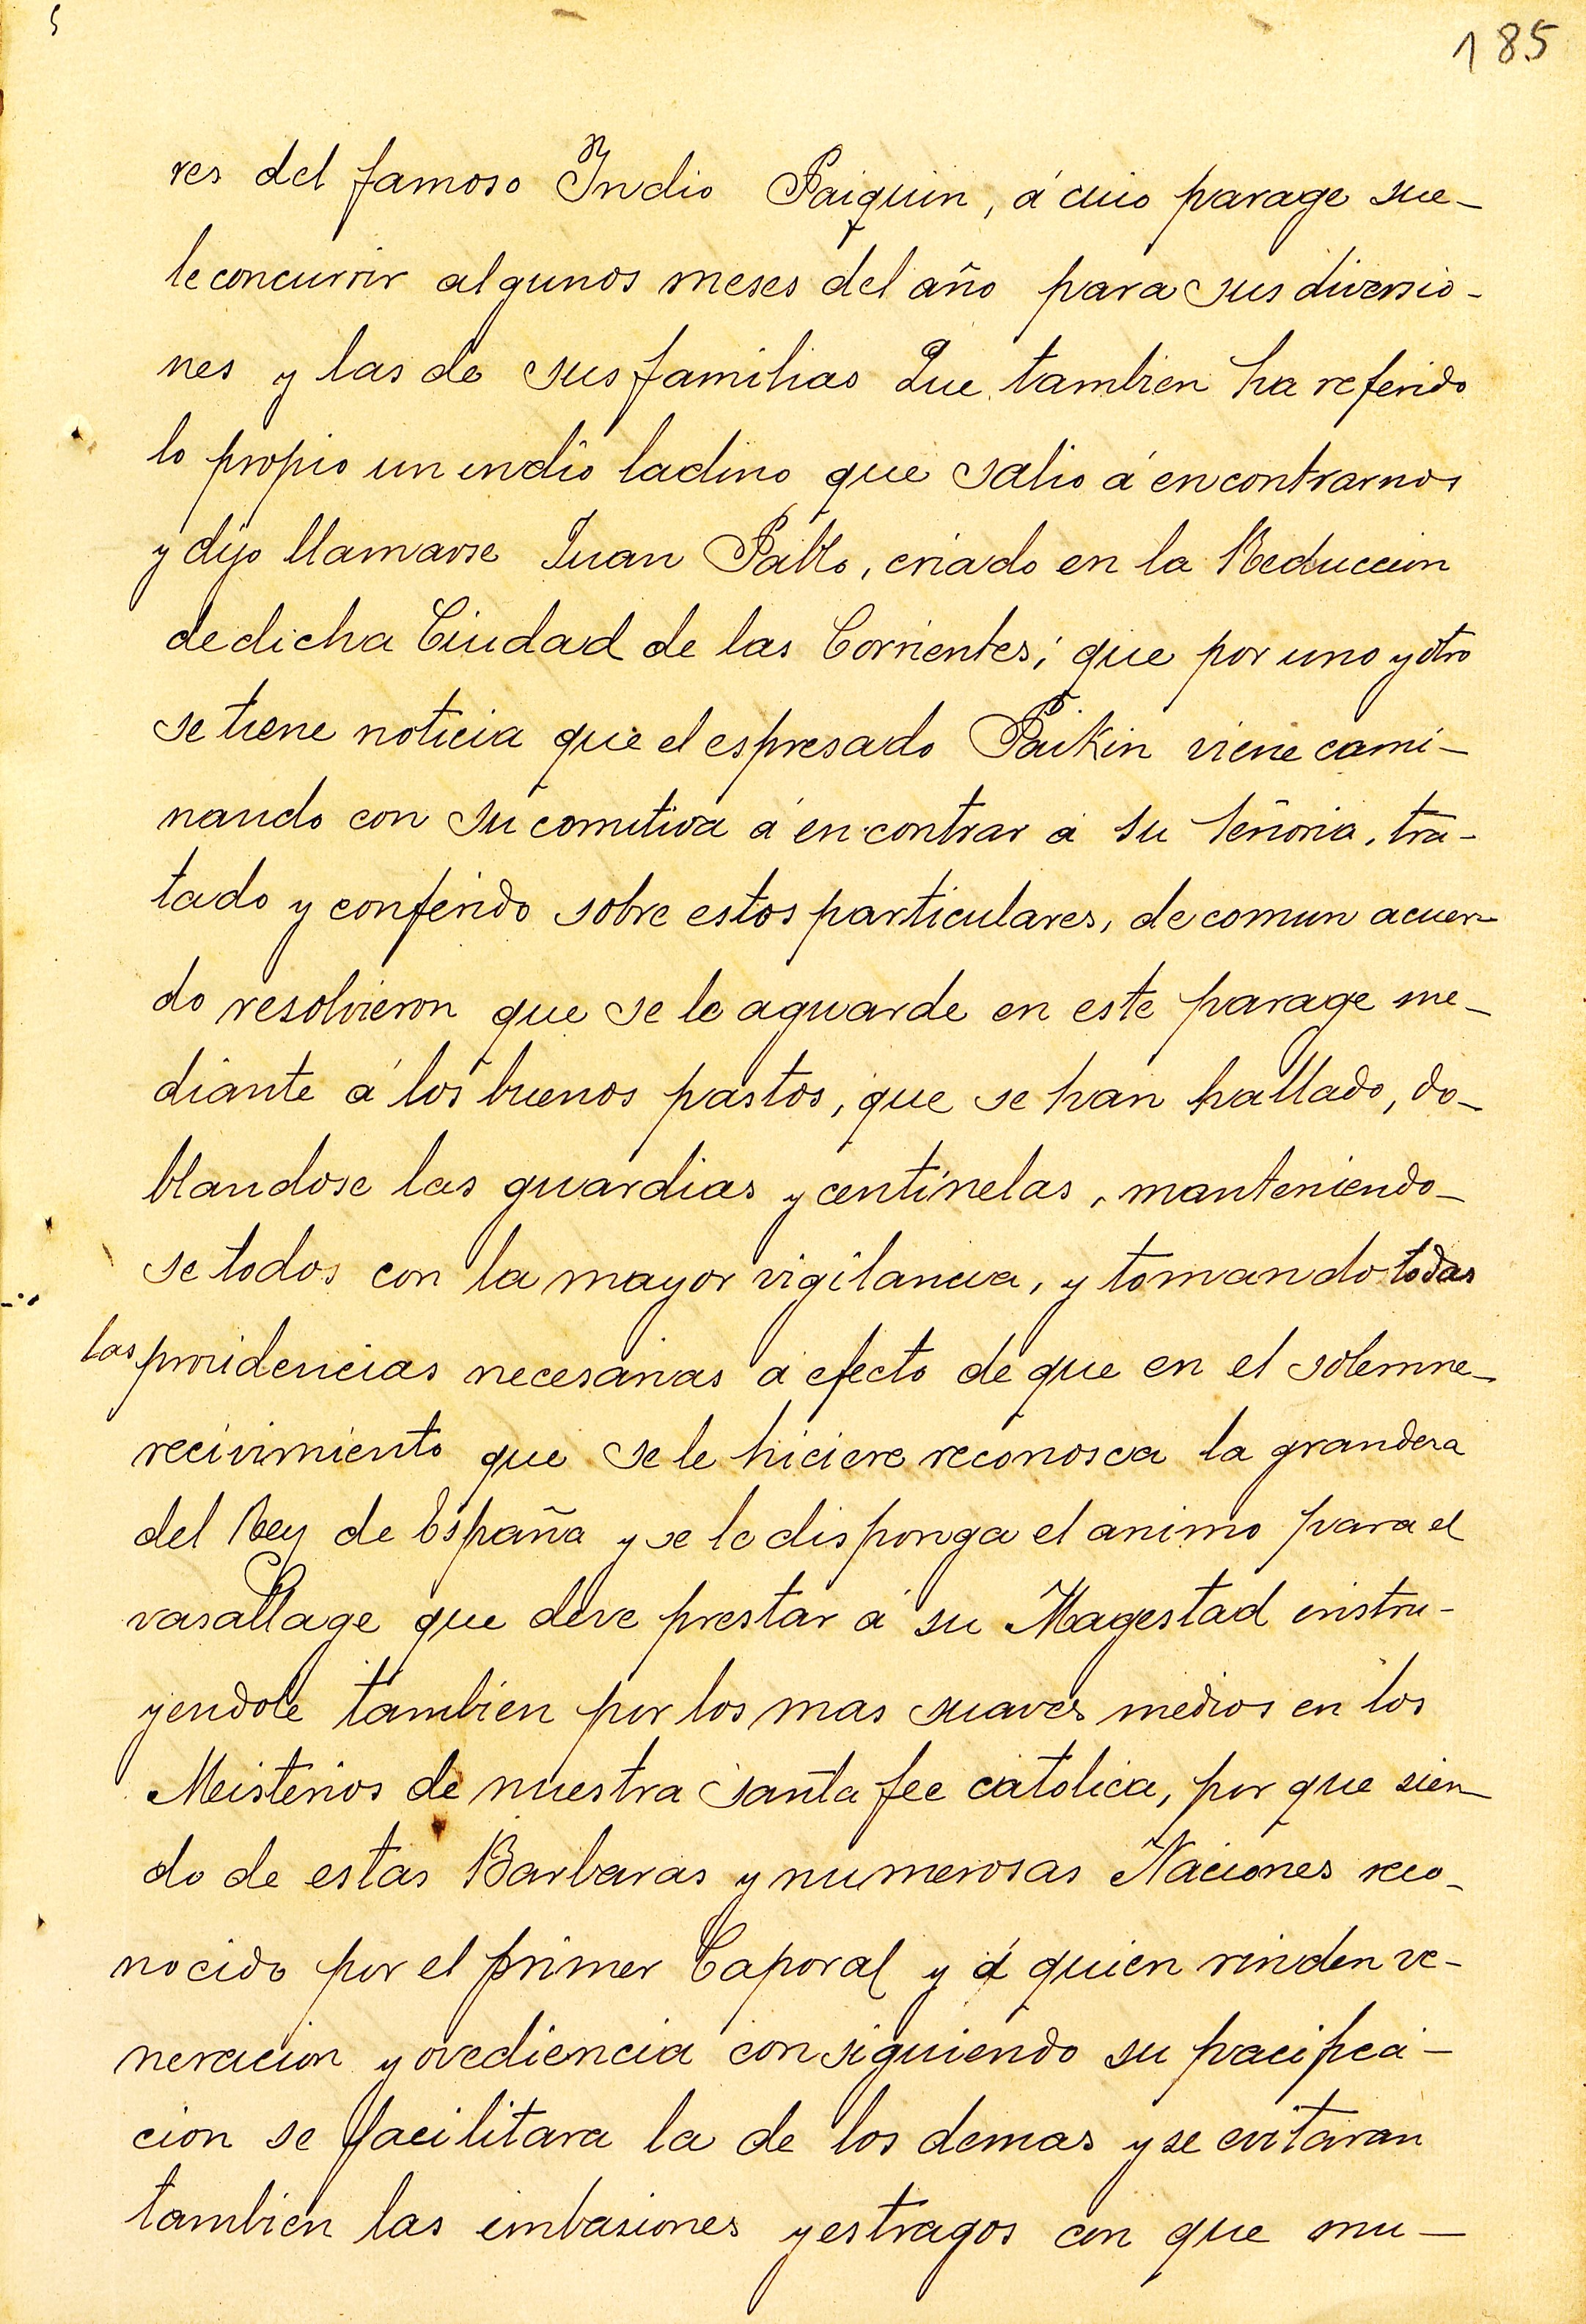 185
res del famoso Indio Paiquin, á cuio parage sue-
le concurrir algunos meses del año para sus diversio-
nes y las de sus familias Que tambien ha referido
lo propio un indio ladino que salio á encontrarnos
y dijo llamarse Juan Pablo, criado en la Reduccion
de dicha Ciudad de las Corrientes; que por uno y otro
se tiene noticia que el espresado Paikin viene cami-
nando con su comitiva á encontrar á su Señoria, tra-
tado y conferido sobre estos particulares, de comun acuer-
do resolvieron que se le aguarde en este parage me-
diante á los buenos pastos, que se han hallado, do-
blandose las guardias y centinelas, manteniendo-
se todos con la mayor vigilancia, y tomando todas
las providencias necesarias á efecto de que en el solemne-
recivimiento que se le hiciere reconosca la grandeza
del Rey de España y se le disponga el animo para el
vasallage que deve prestar á su Magestad instru-
yendole tambien por los mas suaves medios en los
Meisterios de nuestra santa fee catolica, por que sien-
do de estas Barbaras y numerosas Naciones reco-
nocido por el primer Caporal y á quien rinden ve-
neracion y ovediencia consiguiendo su pacifica-
cion se facilitara la de los demas y se evitaran
tambien las imbasiones y estragos con que mu-